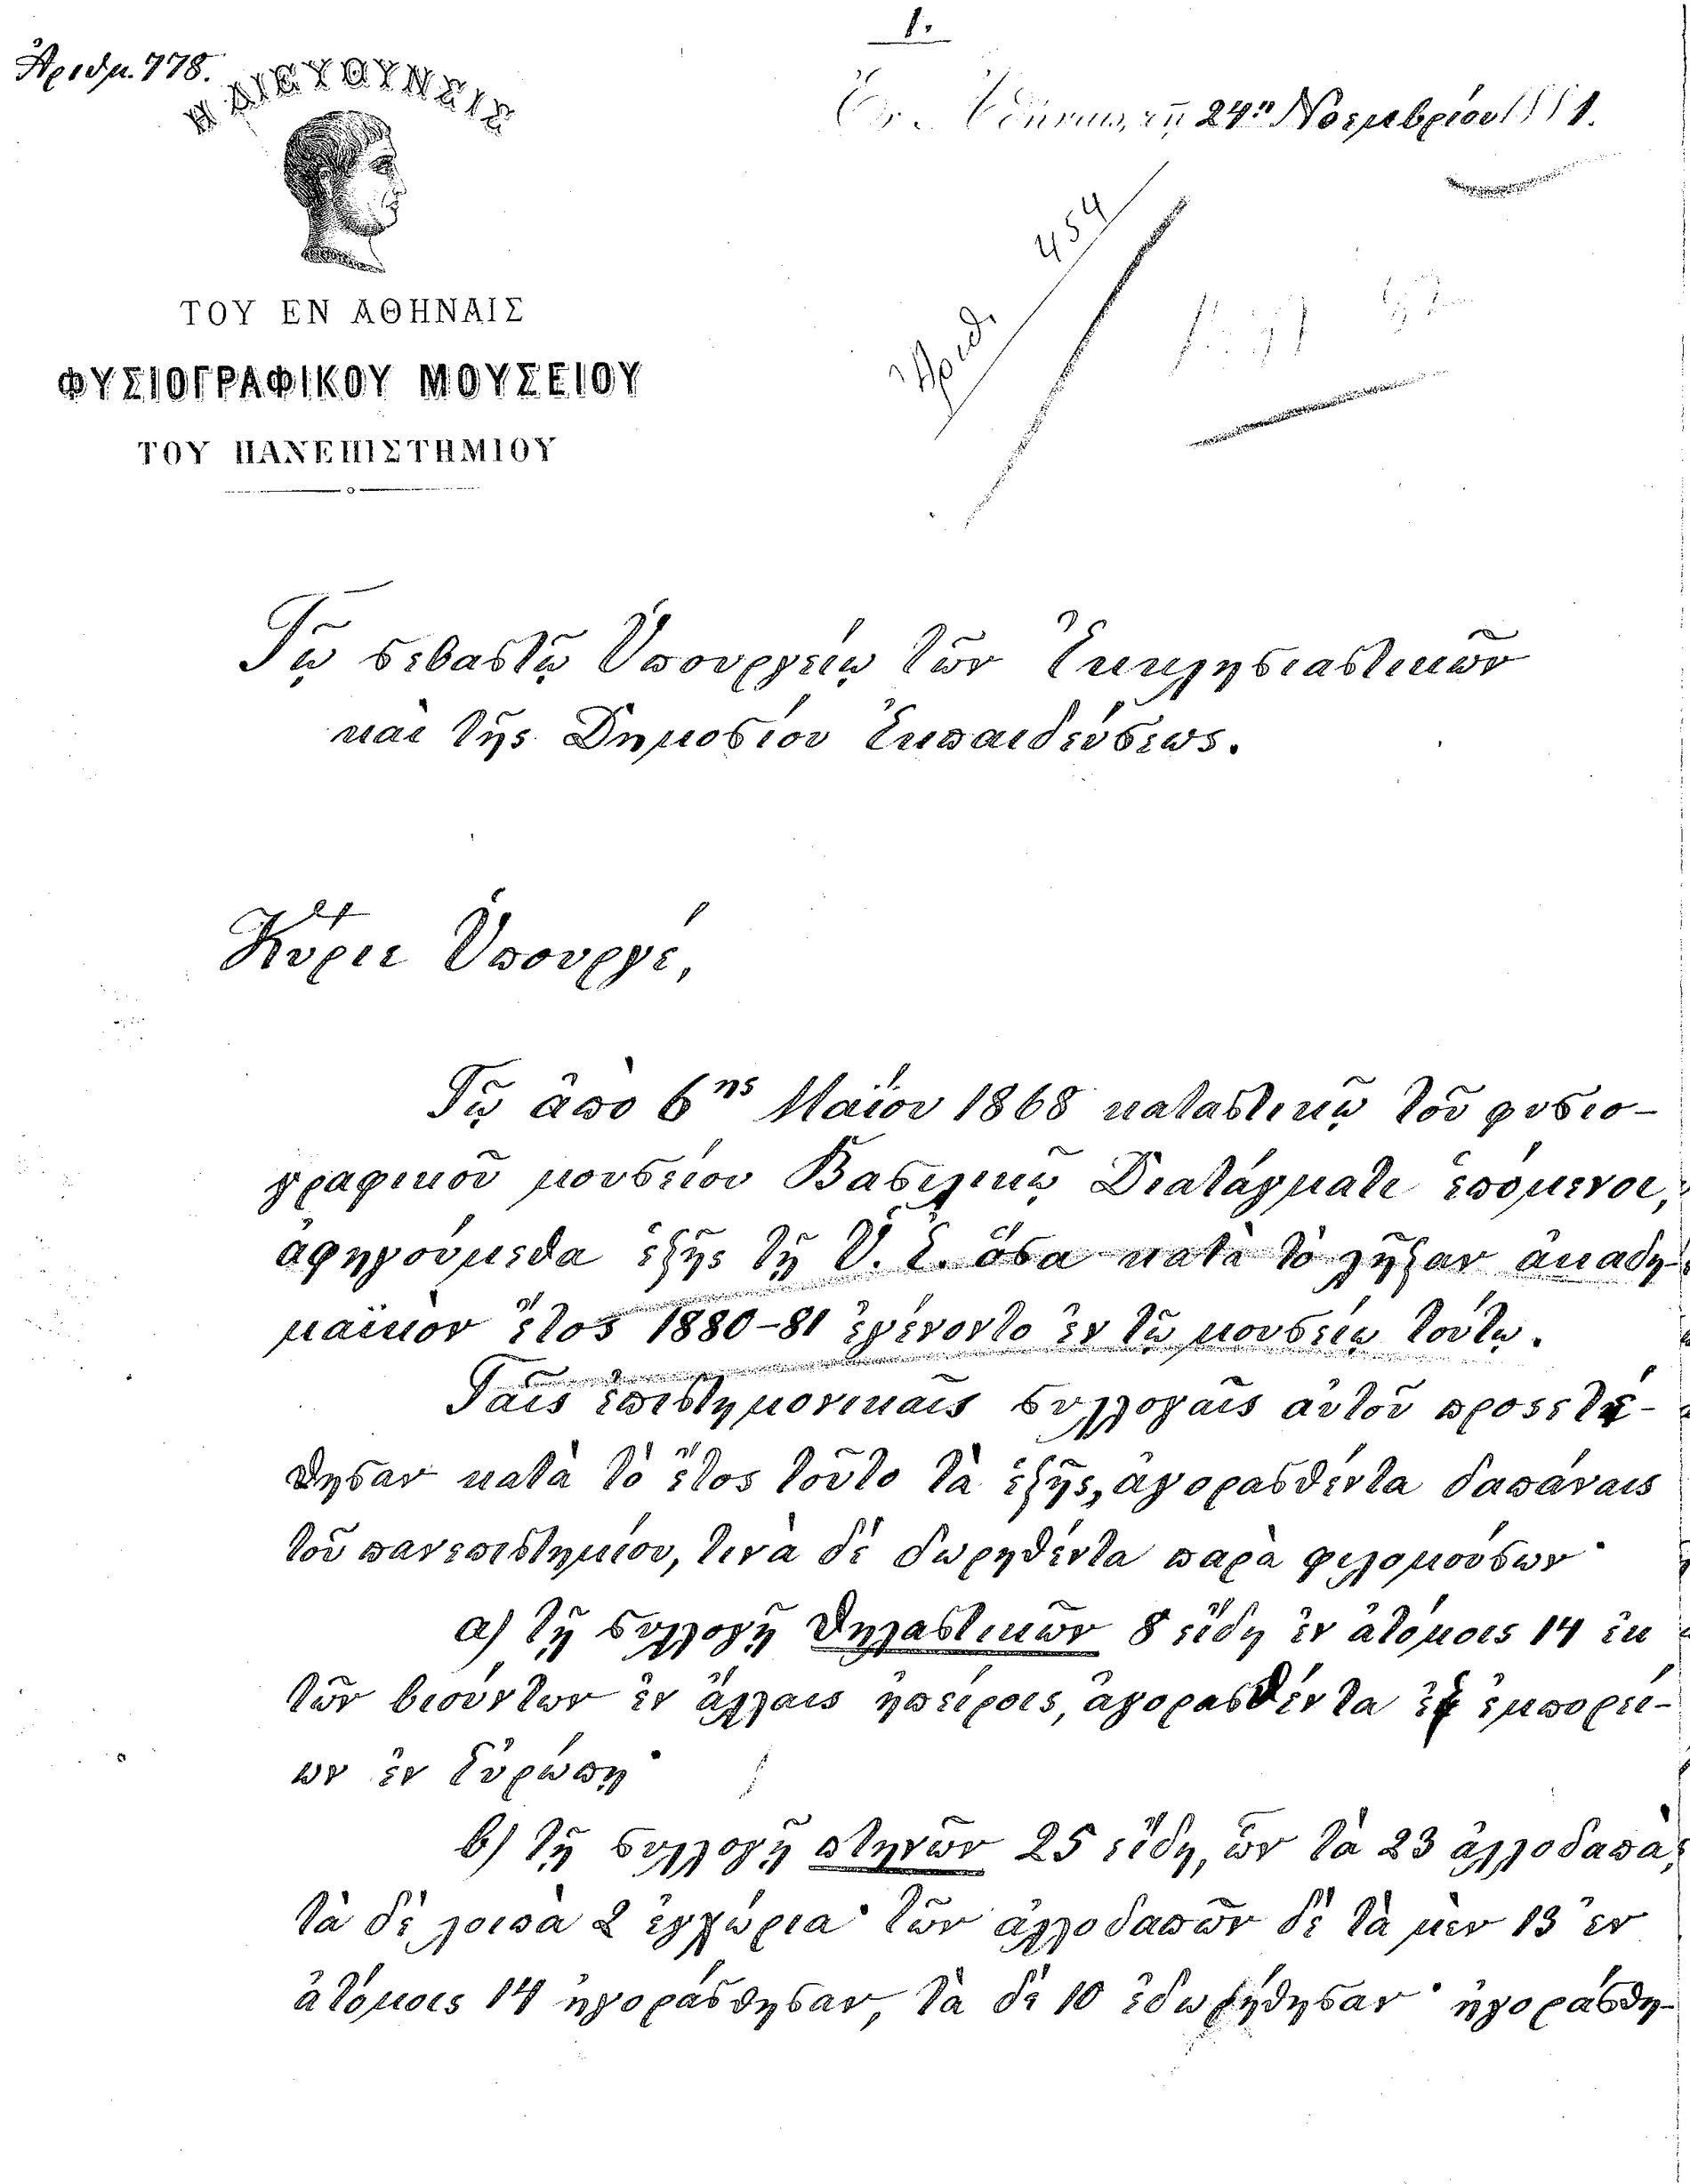 1.
Ἀριθμ. 778.
Η ΔΙΕΥΘΥΝΣΙΣ
ΤΟΥ ΕΝ ΑΘΗΝΑΙΣ
ΦΥΣΙΟΓΡΑΦΙΚΟΥ ΜΟΥΣΕΙΟΥ
ΤΟΥ ΠΑΝΕΠΙΣΤΗΜΙΟΥ
Ἐν Ἀθήναις, τῇ 24ῃ Νοεμβρίου 1881.
Ἀριθ. 454
Τῷ σεβαστῷ Ὑπουργείῳ τῶν Ἐκκλησιαστικῶν
καὶ τῆς Δημοσίου Ἐκπαιδεύσεως.
Κύριε Ὑπουργέ,
Τῷ ἀπὸ 6ης Μαΐου 1868 καταστικῷ τοῦ φυσιο-
γραφικοῦ μουσείου Βασιλικῷ Διατάγματι ἑπόμενοι,
ἀφηγούμεθα ἑξῆς τῇ Ὑ. Ἐ. ὅσα κατὰ τὸ λῆξαν ἀκαδη-
μαϊκὸν ἔτος 1880-81 ἐγένοντο ἐν τῷ μουσείῳ τούτῳ.
Ταῖς ἐπιστημονικαῖς συλλογαῖς αὐτοῦ προσετέ-
θησαν κατὰ τὸ ἔτος τοῦτο τὰ ἑξῆς, ἀγορασθέντα δαπάναις
τοῦ πανεπιστημίου, τινὰ δὲ δωρηθέντα παρὰ φιλομούσων·
α) τῇ συλλογῇ θηλαστικῶν 8 εἴδη ἐν ἀτόμοις 14 ἐκ
τῶν βιούντων ἐν ἄλλαις ἠπείροις, ἀγορασθέντα ἐξ ἐμπορεί-
ων ἐν Εὐρώπῃ·
β) τῇ συλλογῇ πτηνῶν 25 εἴδη, ὧν τὰ 23 ἀλλοδαπά,
τὰ δὲ λοιπὰ 2 ἐγχώρια· τῶν ἀλλοδαπῶν δὲ τὰ μὲν 13 ἐν
ἀτόμοις 14 ἠγοράσθησαν, τὰ δὲ 10 ἐδωρήθησαν· ἠγοράσθη-